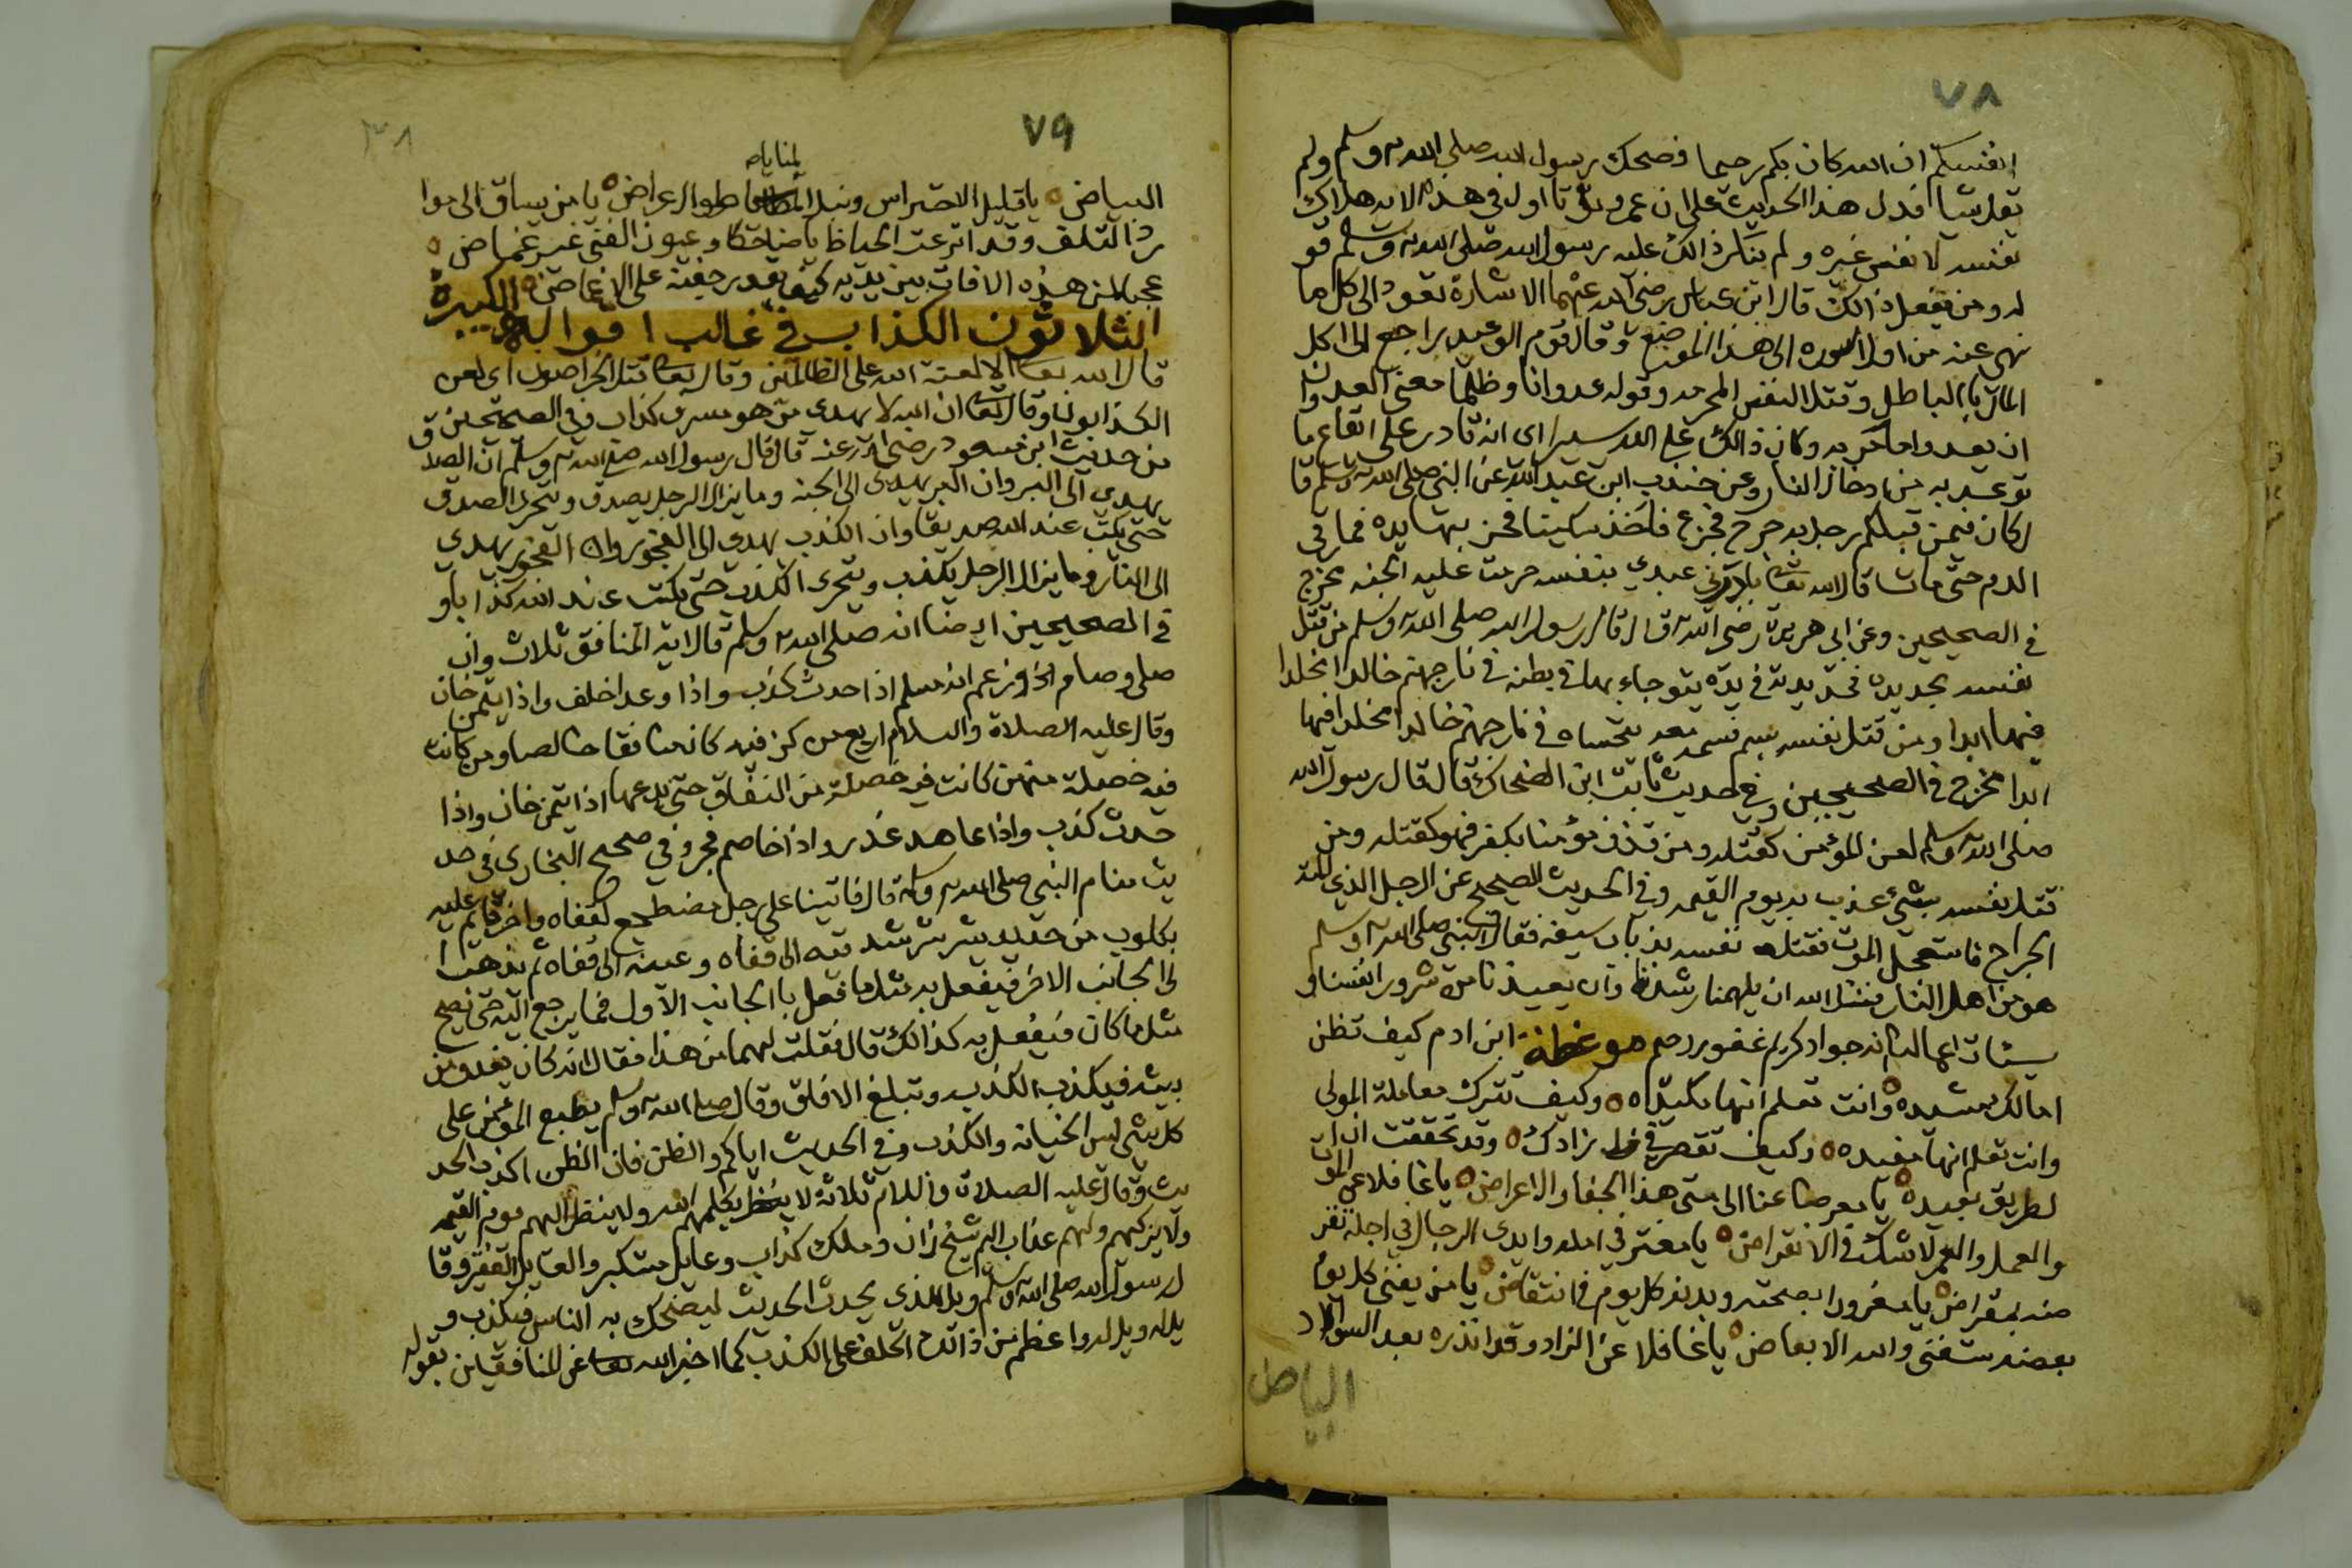 ٧٨
انفسكم ان الله كان بكم رحيما فضحك رسول الله صلى الله وسلم ولم
يقل شيا فدل هذا الحديث على ان عمرو تاول في هذه الايه هلاك
نفسه لا نفس غيره ولم ينكر ذالك عليه رسول الله صلى الله وسلم قو
له ومن يفعل ذالك قال ابن عباس رضي الله عنهما الاشارة تعود الى كل ما
نهي عنه من اول السوره الى هذا الموضع وقال قوم الوعيد راجع الى اكل
المال بالباطل وقتل النفس المحرمه وقوله عدوانا وظلما معنى العدوان
ان يعدوا ما امر به وكان ذالك على الله يسيرا اى انه قادر على ايقاع ما
توعد به من ادخال النار وعن جندب ابن عبد الله عن النبي صلى الله وسلم قا
ل كان فيمن قبلكم رجل به جرح فجزع فاخذ سكينا فحز بها يده فما رقى
الدم حتى مات قال الله بادرني عبدي بنفسه حرمت عليه الجنه مخرج
في الصحيحين وعن ابي هريرة رضي الله قال قال رسول الله صلى الله وسلم من قتل
نفسه بحديده فحديدته في يده يتوجاء بها في بطنه في نار جهنم خالدا مخلدا
فيها ابدا ومن قتل نفسه بسم فسمه بيده يتحساه في نار جهنم خالدا مخلدا فيها
ابدا مخرج في الصحيحين وفي حديث ثابت ابن الضحاك قال قال رسول الله
صلى الله وسلم لعن المؤمن كقتله ومن قذف مؤمنا بكفر فهو كقتله ومن
قتل نفسه بشيء عذب به يوم القيمه وفي الحديث الصحيح عن الرجل الذي المته
الجراح فاستعجل الموت فقتل نفسه بذباب سيفه فقال النبي صلى الله وسلم
هو من اهل النار فنسئل الله ان يلهمنا رشدنا وان يعيذنا من شرور انفسنا و
سيئات اعمالنا انه جواد كريم غفور رحيم موعظة ابن ادم كيف تظن
اعمالك مشيده وانت تعلم انها مكيده وكيف تترك معاملة المولى
وانت تعلم انها مفيده وكيف تقصر في زادك وقد تحققت ان
لطريق بعيده يا معرضا عنا الى متى هذا الجفا والاعراض يا غافلا عن الموت
والعمل والعمر لاشك في الانقراض يا مغتر في امله وايدى الرجال في اجله تقر
ضه بمقراض يا مغرورا بصحته وبدنه كل يوم في انتقاض يا من يفنى كل يوم
بعضه ستفنى والله الابعاض يا غافلا عن الزاد وقد انذره بعد السواد
البياض
٧٩
لمنايا
البياض يا قليل الاحتراس ونبل طوال عراض يا من يساق الى موا
رد التلف وقد اترعت الحياض يا ضاحكا وعيون الفنى غير غماض
عجبا لمن هذه الافات بين يديه كيف يقدر جفنه على الاغماض الكبيرة
الثلاثون الكذاب في غالب اقواله
قال الله تعا الا لعنة الله على الظالمين وقال تعا قتل الخراصون اى لعن
الكذابون وقال تعا ان الله لا يهدي من هو مسرف كذاب وفي الصحيحين
من حديث ابن مسعود رضي الله عنه قال قال رسول الله صلى الله وسلم ان الصدق
يهدي الى البر وان البر يهدي الى الجنه وما يزال الرجل يصدق ويتحرى الصدق
حتى يكتب عند الله صديقا وان الكذب يهدي الى الفجور وان الفجور يهدي
الى النار وما يزال الرجل يكذب ويتحرى الكذب حتى يكتب عند الله كذابا و
في الصحيحين ايضا انه صلى الله وسلم قال اية المنافق ثلاث وان
صلى وصام وزعم انه مسلم اذا حدث كذب واذا وعد اخلف واذا ايتمن خان
وقال عليه الصلاة والسلام اربع من كن فيه كان منافقا خالصا ومن كانت
فيه خصلة منهن كانت فيه خصلة من النفاق حتى يدعها اذا ايتمن خان واذا
حدث كذب واذا عاهد غدر واذا خاصم فجر وفي صحيح البخاري في حد
يث منام النبي صلى الله وسلم قال فاتينا على رجل مضطجع لقفاه واخر قايم عليه
بكلوب من حديد يشرشر شدقيه الى قفاه وعينه الى قفاه ثم يذهب ا
لى الجانب الاخر فيفعل به مثل ما فعل با الجانب الاول فما يرجع اليه حتى يصح
مثل ما كان فيفعل به كذالك قال فقلت لهما من هذا فقال انه كان يغدو من
بيته فيكذب الكذب وتبلغ الافاق وقال صلى الله وسلم يطبع المؤمن على
كل شي ليس الخيانه والكذب وفي الحديث اياكم والظن فان الظن اكذب الحد
يث وقال عليه الصلاة والسلام ثلاثة لا يكلمهم الله ولا ينظر اليهم يوم القيمه
ولا يزكيهم ولهم عذاب اليم شيخ زان وملك كذاب وعايل متكبر والعايل الفقير وقا
ل رسول الله صلى الله وسلم ويل للذي يحدث الحديث ليضحك به الناس فيكذب و
يل له ويل له واعظم من ذالك الحلف على الكذب كما اخبر الله تعا عن المنافقين بقوله